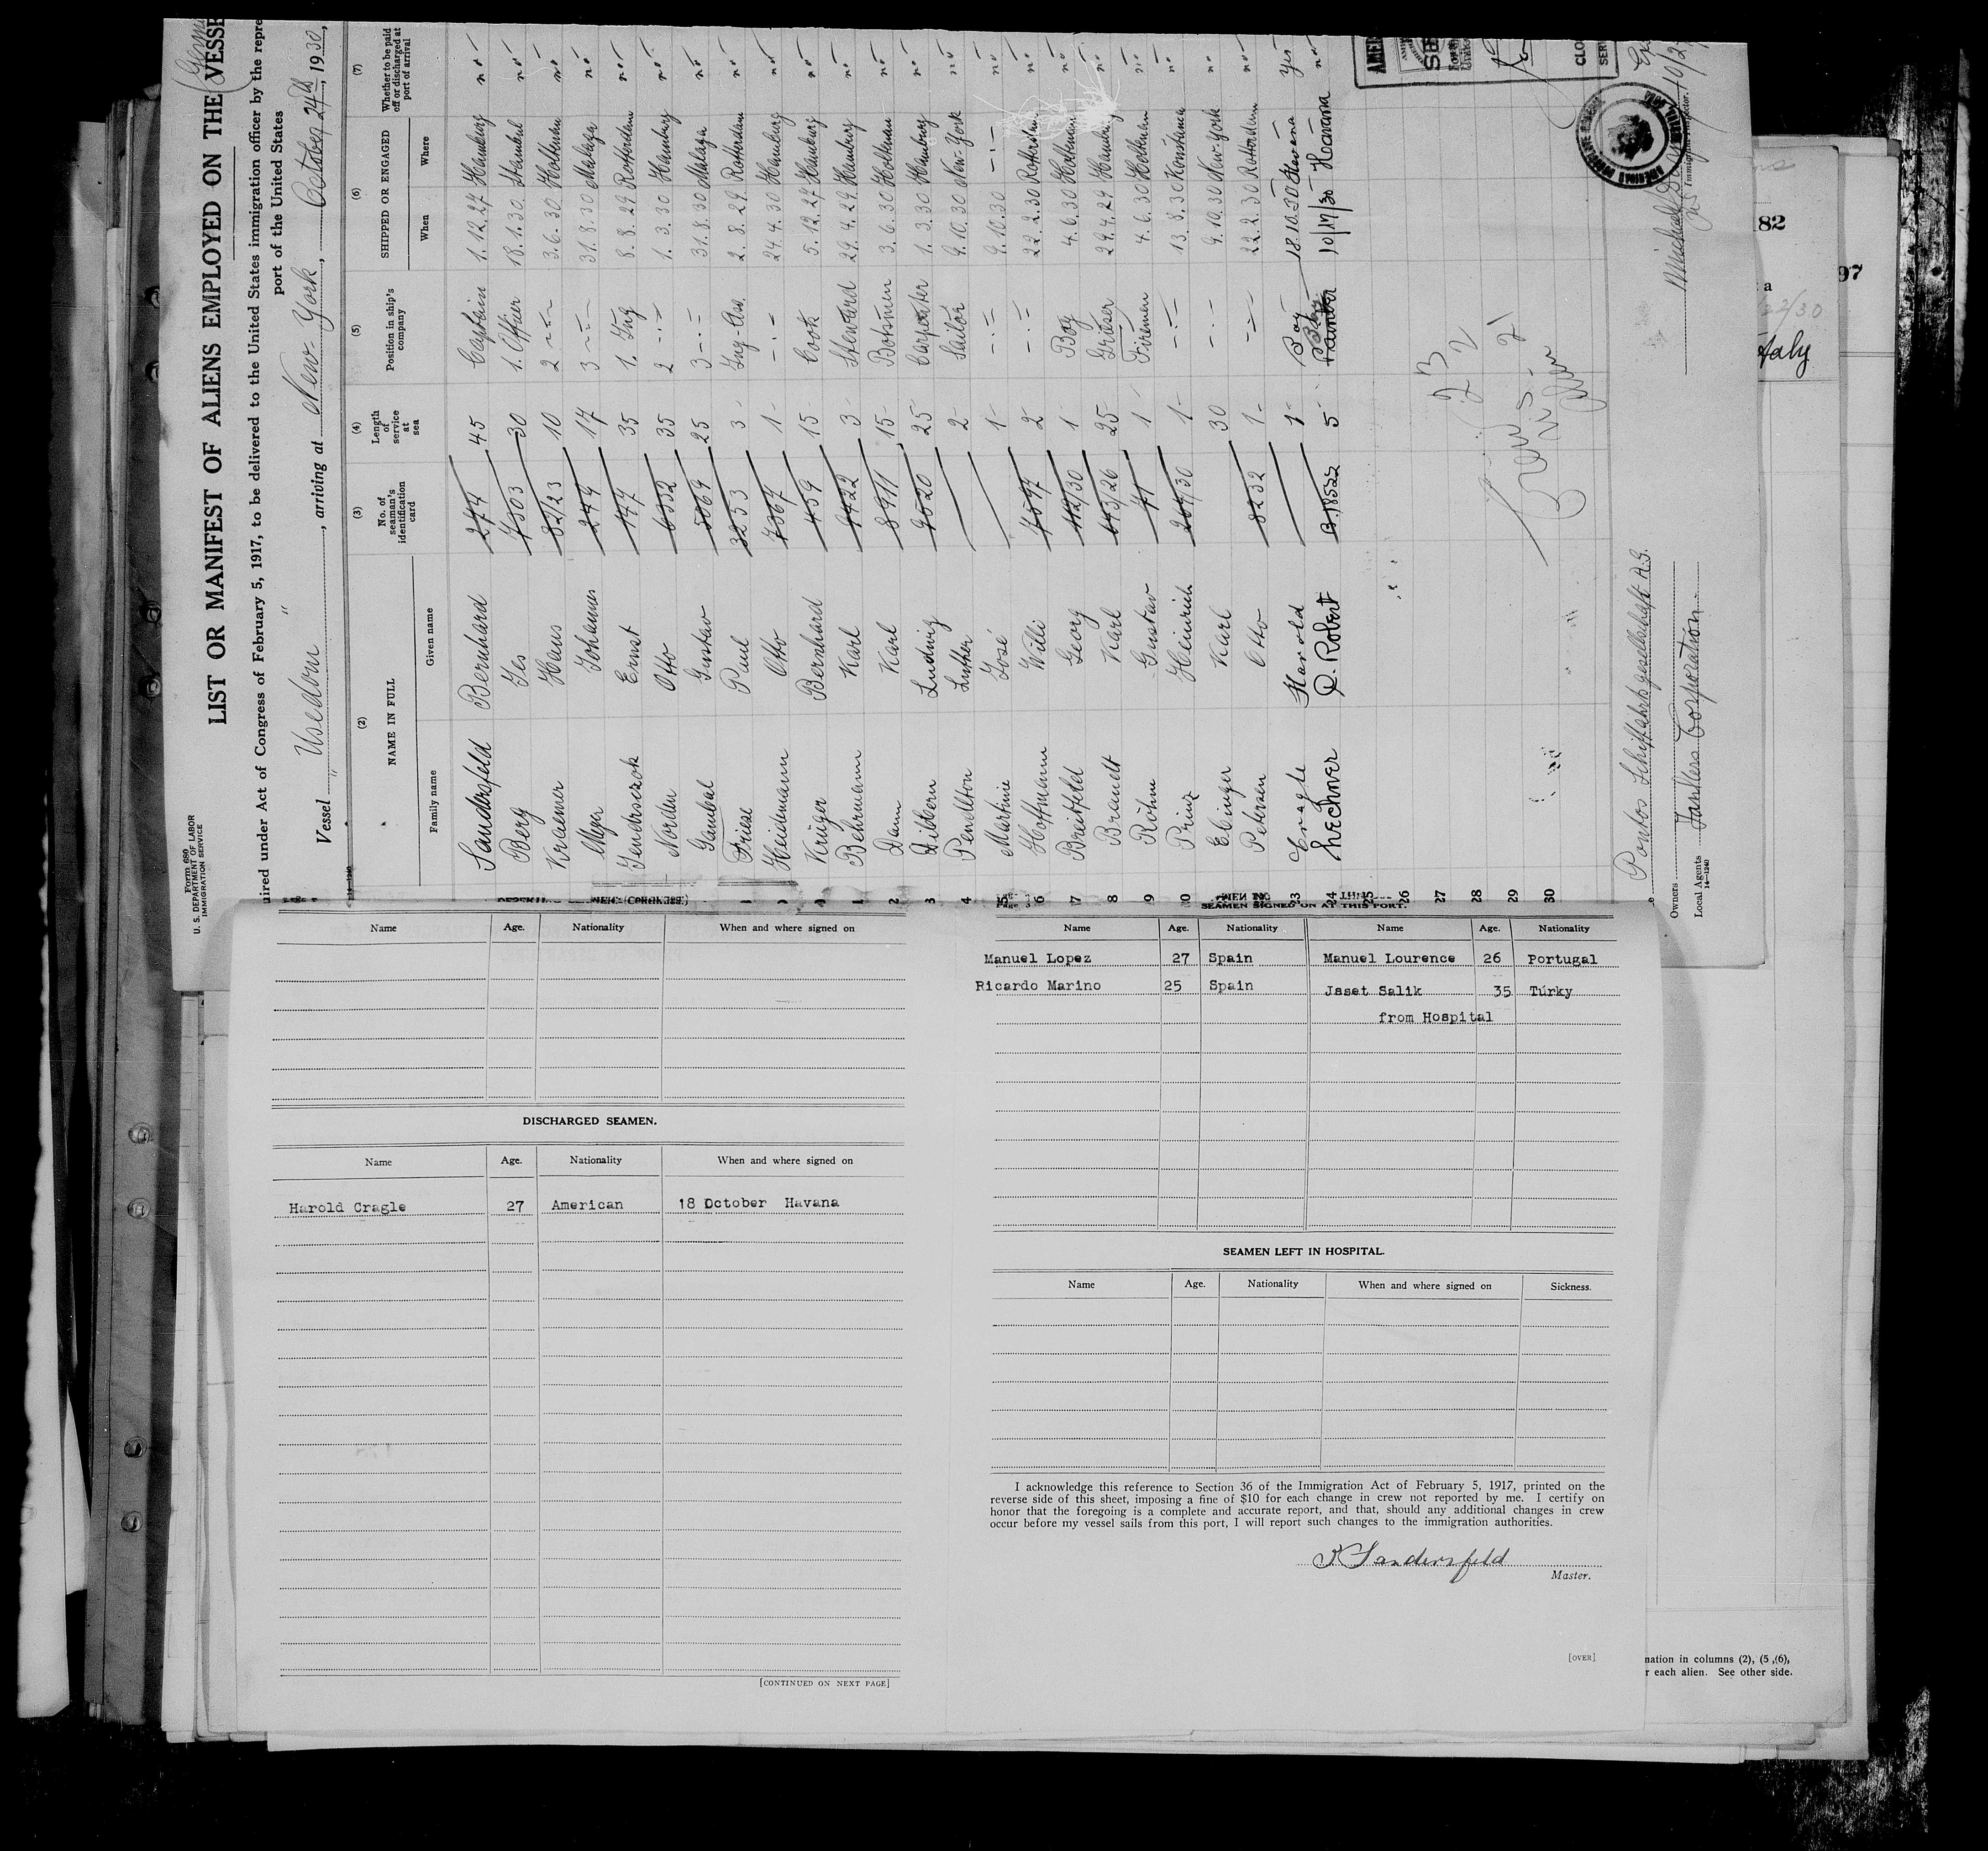 Form 680
U. S. DEPARTMENT OF LABOR
IMMIGRATION SERVICE
LIST OR MANIFEST OF ALIENS EMPLOYED ON THE VESSE
uired under Act of Congress of February 5, 1917, to be delivered to the United States immigration officer by the repre
port of the United States
Vessel " Usedom ", arriving at New-York, October 24th, 1930,
(2) (3) (4) (5) (6) (7)
NAME IN FULL
Family name Given name
No. of seaman's identification card
Length of service at sea
Position in ship's company
SHIPPED OR ENGAGED
When Where
Whether to be paid off or discharged at port of arrival
Sandersfeld Bernhard 274 45 Captain 1.12.27 Hamburg no
Berg Jes 7303 30 1. Officer 18.1.30 Stambul no
Kraemer Hans 82/23 10 2 -"- 3.6.30 Holtenau no
Meyer Johannes 249 17 3 -"- 31.8.30 Malaga no
Jendrsczok Ernst 177 35 1. Ing 8.8.29 Rotterdam no
Norden Otto 6352 35 2 -"- 1.3.30 Hamburg no
Gambal Gustav 5069 25 3 -"- 31.8.30 Malaga no
Friese Paul 3253 3 Ing-Ass. 2.8.29 Rotterdam no
Heidmann Otto 7367 1 -"- 24.4.30 Hamburg no
Krüger Bernhard 459 15 Cook 5.12.27 Hamburg no
Behrmann Karl 1422 3 Steward 29.4.29 Hamburg no
Damm Karl 8911 15 Botsmen 3.6.30 Holtenau no
Dibbern Ludwig 9520 25 Carpenter 1.3.30 Hamburg no
Pendlton Luther 2 Sailor 9.10.30 New-York no
Martinie José 1 -"- 9.10.30 -"- no
Hoffmann Willi 7597 2 -"- 22.2.30 Rotterdam no
Breitfeld Georg 112/30 1 Boy 4.6.30 Holtenau no
Brandt Karl 643/26 25 Greaser 29.4.29 Hamburg no
Röhm Gustav 41 1 Firemen 4.6.30 Holtenau no
Prinz Heinrich 264/30 1 -"- 13.8.30 Konstanza no
Ebinger Karl 30 -"- 9.10.30 New-York no
Petersen Otto 8232 1 -"- 22.2.30 Rotterdam no
23 Cragle Harold 1 Boy 18.10.30 Havana yes
24 Lechner Robert B.18522 5 10/17/30 Havana no
25
26
27
28
29
30
Owners Pontos Schiffahrtsgesellschaft A.G.
Local Agents Tankless Corporation
14-1240
Immigrant Inspector.
82
97
a
Italy
Name Age. Nationality When and where signed on
DISCHARGED SEAMEN.
Name Age. Nationality When and where signed on
Harold Cragle 27 American 18 October Havana
[CONTINUED ON NEXT PAGE]
SEAMEN SIGNED ON AT THIS PORT.
Name Age. Nationality Name Age. Nationality
Manuel Lopez 27 Spain Manuel Lourence 26 Portugal
Ricardo Marino 25 Spain Jsset Salik 35 Turky
from Hospital
SEAMEN LEFT IN HOSPITAL.
Name Age. Nationality When and where signed on Sickness.
I acknowledge this reference to Section 36 of the Immigration Act of February 5, 1917, printed on the
reverse side of this sheet, imposing a fine of $10 for each change in crew not reported by me. I certify on
honor that the foregoing is a complete and accurate report, and that, should any additional changes in crew
occur before my vessel sails from this port, I will report such changes to the immigration authorities.
Sandersfeld
Master.
[OVER]
nation in columns (2), (5,(6),
r each alien. See other side.